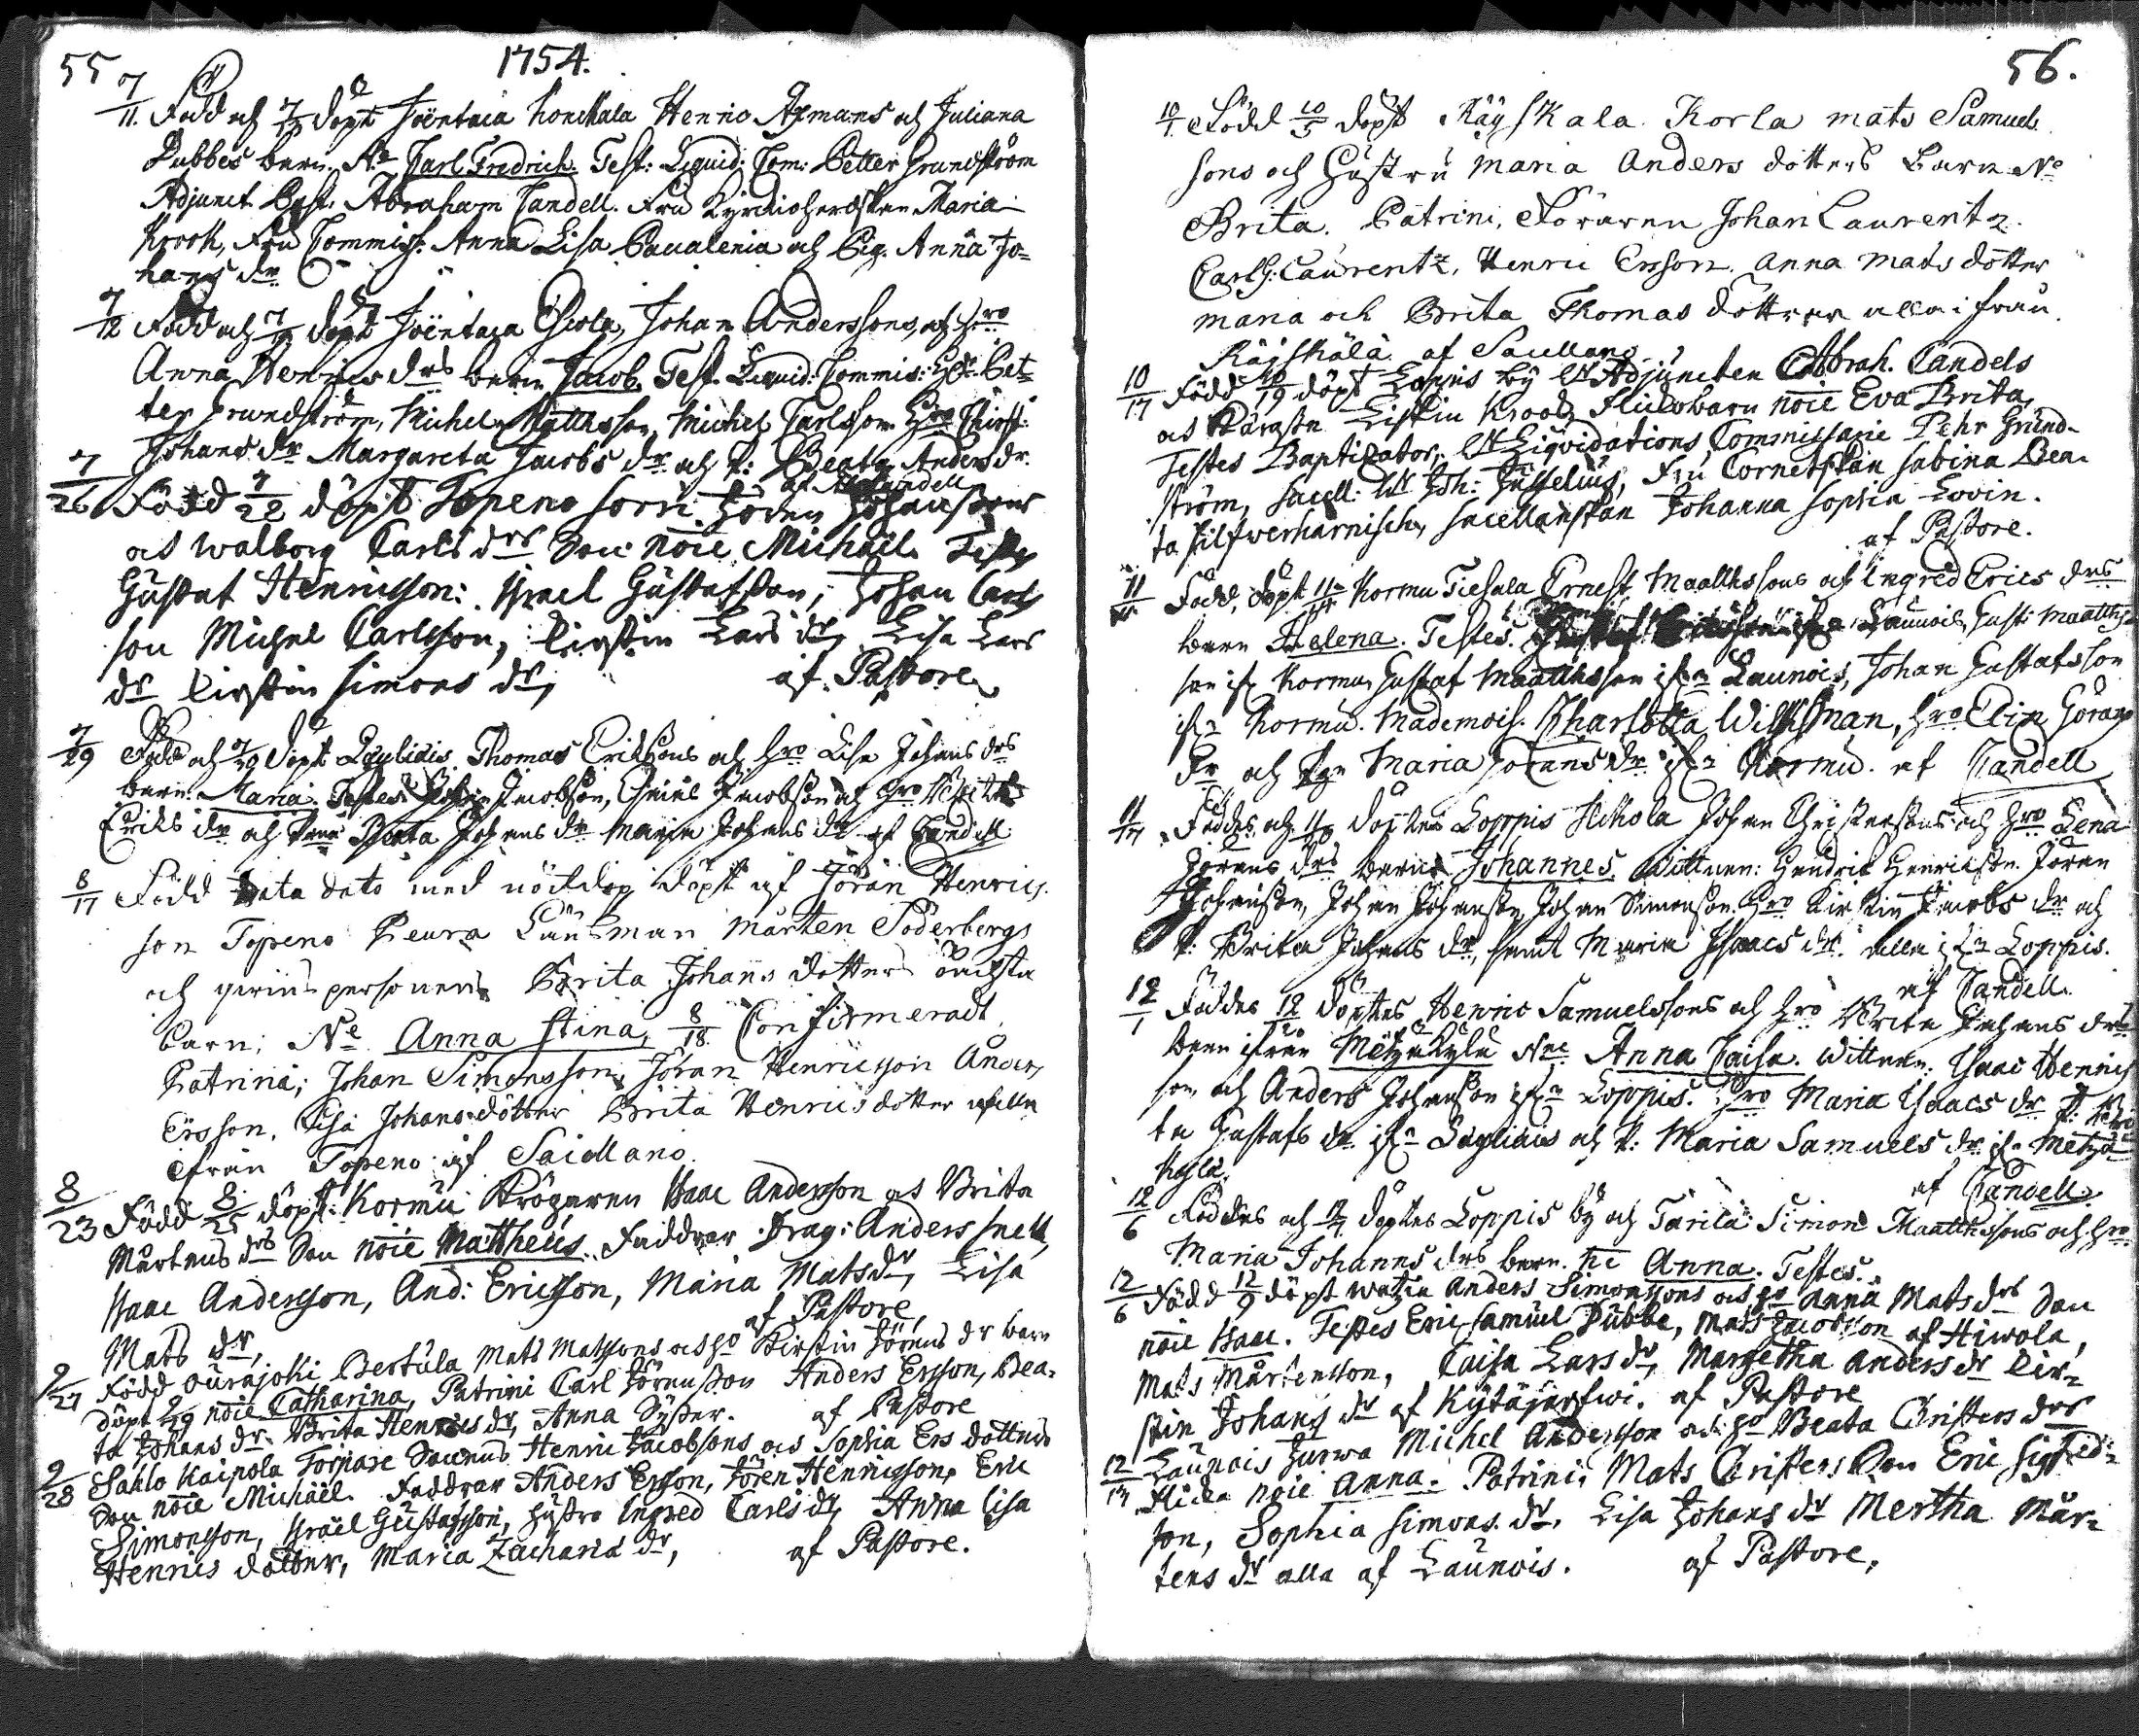 55
1754.
7/11. Född och 7/ döpt Joentaca Honckala Henric Axmans och Juliana
Dubbes barn Ne Carl Fredrich. Test: Liquid: Com: Petter Grundström
Adjunct. Past. Abraham Candell. Fru Kyrckioherdskan Maria
Krook, Fru Commiss: Anna Lisa Paualenia och Pig. Anna Jo=
hans dr.
7/12 Född och 7/ döpt Joentaca Eskola, Johan Anderssons, och hro
Anna Henrics drs barn Jacob. Test. Liquid: Commis: Hr Pet=
ter Grundström, Michel Matthsson, Michel Carlsson hro Christ:
Johans dr Margareta Jacobs dr och P: Beata Anders dr.
af Candell
7/26 Född 7/28 döpt Topeno Sorri Jören Johanssons
och Walborg Carls drs Son noie Michaël. Testes
Gustaf Henricsson: Israel Gustafsson, Johan Carls
son Michel Carlsson, Kirstin Lars dr, Lisa Lars
dr Kirstin Simons dr, af Pastore
7/29 Född och 7/29 döpt Läyliäis Thomas Erikssons och hro Lisa Johans drs
barn. Maria. Testes Johan Jacobson, Jacobson och hro
Eriks dr och Beata Johans dr Maria Johans dr af Candell
8/17 Född data dato med nöddop döpt af Jöran Henrics
son Topeno Peura Länsman Mårten Söderbergs
och qvins personens Brita Johans dotters oächta
barn; Ne Anna Stina, 8/18. Confirmeradt
Patrina; Johan Simonsson, Jöran Henricsson Anders
Ersson. Lisa Johansdotter Brita Henricsdotter alla
ifrån Topeno af Sacellano.
8/23 Född 8/25 döpt: Kormu Krögaren Isaac Andersson os Brita
Mårtens drs Son noie Mattheus. Faddrar Drag: Anders Snell,
Isaac Andersson, And: Ericsson, Maria Mats dr, Lisa
Mats dr, af Pastore,
9/27 Född Ourajoki Bertula Mats Matssons och ho Kirstin Jörens dr barn
döpt 9/29 noie Catharina, Patrini Carl Jörensson Anders Ersson, Bea=
ta Johans dr. Brita Henrics dr, Anna Sysser. af Pastore
9/28 Sahlo Kaipola Torpare Henric Jacobsons os Sophia Ers dotters
Son noie Michaël. Faddrar Anders Ersson, Jören Henricsson, Eric
Simonsson, Israël Gustafsson, hustro Ingred Carls dr Anna Lisa
Henrics dotter, Maria Zacharia dr, af Pastore.
56.
10/1 Född 10/5 döpt Räyskala Korla Mats Samuels
sons och Hustru Maria Anders dotters Barn Ne
Brita. Patrini, Föraren Johan Laurentz.
Carl G: Laurentz, Henric Ersson. Anna Mats dotter
Maria och Brita Thomas döttrar alla ifrån
Räyskälä af Sacellano
10/17 Född 10/19 döpt Loppis by Hr Adjuncten Abrah. Candels
os Käraste Liskin Krook Flicobarn noie Eva Brita,
Testes Baptizator, Hr Liqvidations Commissarie Pehr Grund=
ström, Sacell: Hr Joh: Jusselius, Fru Cornetskan Sabina Bea=
ta Silfwerharnisch, Sacellanskan Johanna Sophia Lovin.
af Pastore.
11/ Född, döpt 11/ Kormu Tiehala Ernest Maatthssons och Ingred Erics drs
barn Helena. Testes. Launois, Gust: Maatths=
son ifn Kormu, Gustaf Maatthsson ifn Launois, Johan Gustafsson
ifn Kormu. Mademois. Kharlotta Wilckman, hro Elin Görans
dr och Pgn Maria Jörans dr ifn Kormu. af Candell
11/17 Föddes och 11/ döptes Loppis Hikola Johan Christerssons och hro Lena
Jörens drs barn Johannes. Wittnen: Hendrik Henrikson. Jören
Johansson, Johan Johanson, Johan Simonson. hro Kirstin Jacobs dr och
P: Brita Johans dr, samt Maria Isaacs dr. alla ifn Loppis.
af Candell.
12/1 Föddes 12/2 döptes Henric Samuelssons och hro Brita Johans drs
barn ifrån Metzäkylä Nne Anna Caisa. Wittnen. Isaac Henrics
son och Anders Johansson ifn Loppis. hro Maria Isaacs dr P: Bri
ta Gustafs dr ifn Läyliäis och P: Maria Samuels dr ifn Metzä
kylä, af Candell.
12/6 Föddes och 12/ döptes Loppis by och Tarila Simon Maatthssons och hro
Maria Johanns drs barn. ne Anna. Testes.
12/6 Född 12/9 döpt Anders Simonssons os ho Anna Mats drs Son
noie Isaac. Testes Eric Samuel Dubbe, Mats Jacobsson af Hiwola,
Mats Mårtensson, Caisa Lars dr, Margetha Anders dr Kir=
stin Johans dr af Kytäjerfwi. af Pastore
12/13 Launois Jurwa Michel Andersson os ho Beata Christers drs
Flicka noie Anna. Patrini, Mats Christers Son Eric Sigfrid=
son, Sophia Simons dr, Lisa Johans dr Mertha Mår=
tens dr alla af Launois. af Pastore,